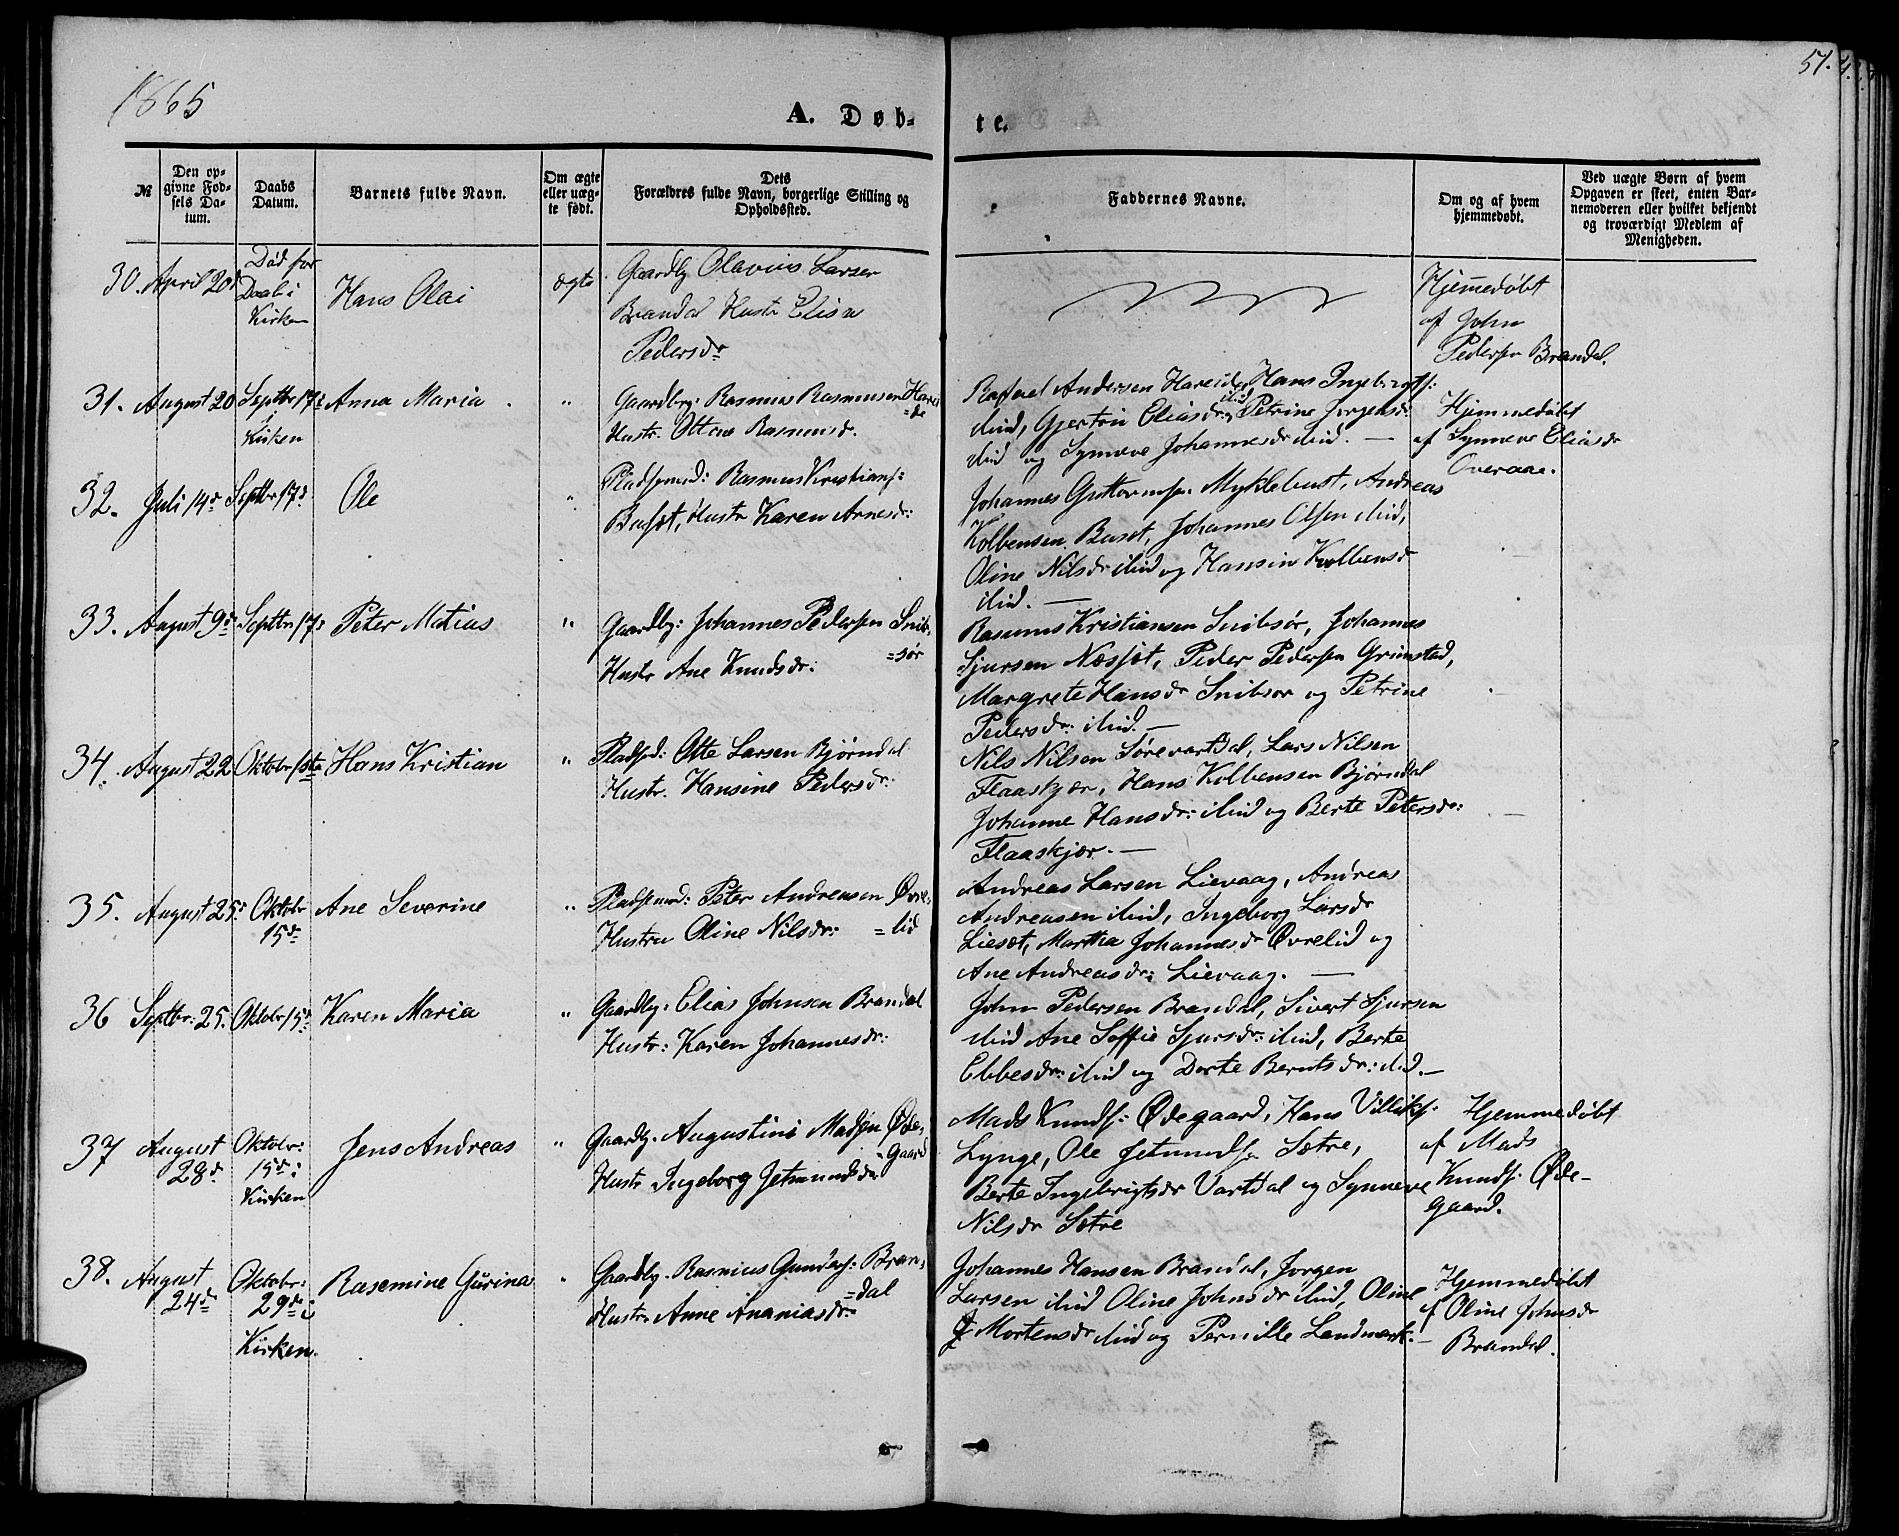 1865
A. Døb-
te.
51.
№
Den op-
givne Fød-
sels Da-
tum.
Daabs
Datum.
Barnets fulde Navn.
Om ægte
eller uæg-
te født.
Dets
Forældres fulde Navn, borgerlige Stilling og
Opholdssted.
Faddernes Navne.
Om og af hvem
hjemmedøbt.
Ved uægte Børn af hvem
Opgaven er skeet, enten Bar-
nemoderen eller hvilket bekjendt
og troværdigt Medlem af
Menigheden.
30. April 20d
Død før
Daab i
Kirken
Hans Olai
ægte
Gaardbr Olavius Larsen
Brandal Hustr Elisa
Pedersdr
Hjemmedøbt
af John
Pedersen Brandal.
31. August 20
Septbr 17d
i
Kirken
Anna Maria
"
Gaardbrg: Rasmus Rasmusen Harei
=de
Hustr. Ottine Rasmusdr.
Rafael Andersen Hareide, Hans Ingebrigts:
ibid, Gjertru Eliasdr ibid, Petrine Jørgensdr:
ibid og Synneve Johannesdr ibid. —
Hjemmedøbt
af Synneve Eliasdr
Overaae.
32. Juli 14d
Septbr 17d
Ole
"
Pladsmd: Rasmus Kristians:
Busæt, Hustr Karen Arnesdr:
Johannes Guttormsen Myklebust, Andreas
Kolbensen Buset, Johannes Olsen ibid,
Oline Nilsdr ibid og Hansine Kolbensdr
ibid. —
33. August 9d
Septbr 17d
Peter Matias
"
Gaardbg: Johannes Pedersen Snib-
=sør
Hustr Ane Knudsdr:
Rasmus Kristiansen Snibsør, Johannes
Sjursen Næssæt, Peder Pedersen Grimstad,
Margrete Hansdr Snibsør og Petrine
Pedersdr: ibid. —
34. August 22
Oktobr 1ste
Hans Kristian
"
Pladsmd: Otte Larsen Bjørndal
Hustr. Hansine Pedersdr:
Nils Nilsen Sørevartdal, Lars Nilsen
Flaaskjær, Hans Kolbensen Bjørndal
Johanne Hansdr: ibid og Berte Petersdr:
Flaaskjær. —
35. August 25d
Oktobr
15d
Ane Severine
"
Pladsmd: Peter Andreasen Øvre-
=lid
Hustru Oline Nilsdr:
Andreas Larsen Lievaag, Andreas
Andreasen ibid, Ingeborg Larsdr
Liesæt, Martha Johannesdr Øvrelid og
Ane Andreasdr: Lievaag. —
36 Septbr: 25.
Oktobr 15d
Karen Maria
"
Gaardbg: Elias Johnsen Brandal
Hustr: Karen Johannesdr:
John Pedersen Brandal, Sivert Sjursen
ibid Ane Soffie Sjursdr: ibid, Berte
Ebbesdr: ibid og Dorte Berntsdr: ibid. —
37 August
28d
Oktobr:
15d i
Kirken
Jens Andreas
"
Gaardbg. Augustinus Madsen Øde-
=gaard
Hustr Ingeborg Jetmundsdr
Mads Knuds: Ødegaard, Hans Villiks:
Lynge, Ole Jetmundsen Sætre,
Berte Ingebrigtsdr Vartdal og Synneve
Nilsdr Sætre
Hjemmedøbt
af Mads
Knuds: Øde-
gaard.
38. August
24d
Oktobr:
29d i
Kirken.
Rasemine Gurina
"
Gaardbg. Rasmus Gunders: Bran-
=dal
Hustr. Anne Ananiasdr:
Johannes Hansen Brandal, Jørgen
Larsen ibid Oline Johnsdr ibid, Oline
Mortensdr ibid og Pernille Landmark. —
Hjemmedøbt
af Oline Johnsdr
Brandal.